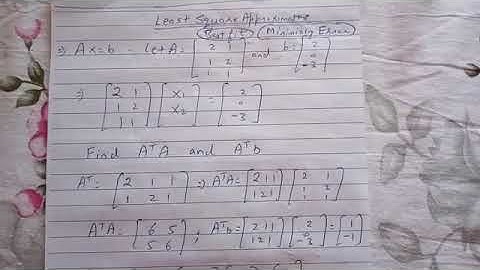 Least Square Approximation
(Best fit) (Minimizing Error)
⇒ Ax=b - let A = [2 1; 1 2; 1 1] and b = [2; 0; -3]
⇒ [2 1; 1 2; 1 1] [x1; x2] = [2; 0; -3]
Find AᵀA and Aᵀb
Aᵀ = [2 1 1; 1 2 1] ⇒ AᵀA = [2 1 1; 1 2 1] [2 1; 1 2; 1 1]
AᵀA = [6 5; 5 6] ; Aᵀb = [2 1 1; 1 2 1] [2; 0; -3] = [1; -1]